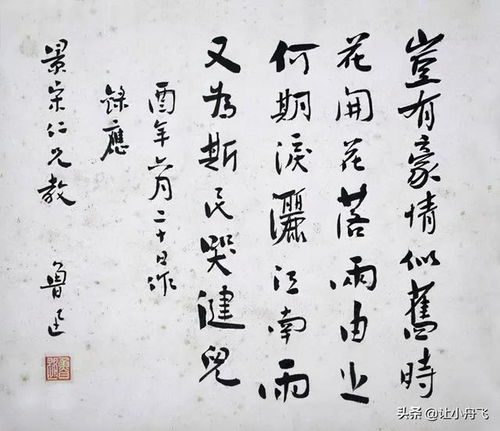 豈有豪情似舊時
花開花落兩由之
何期淚灑江南雨
又為斯民哭健兒
酉年六月二十日作
錄應
景宋仁兄教
魯迅
头条 @让小